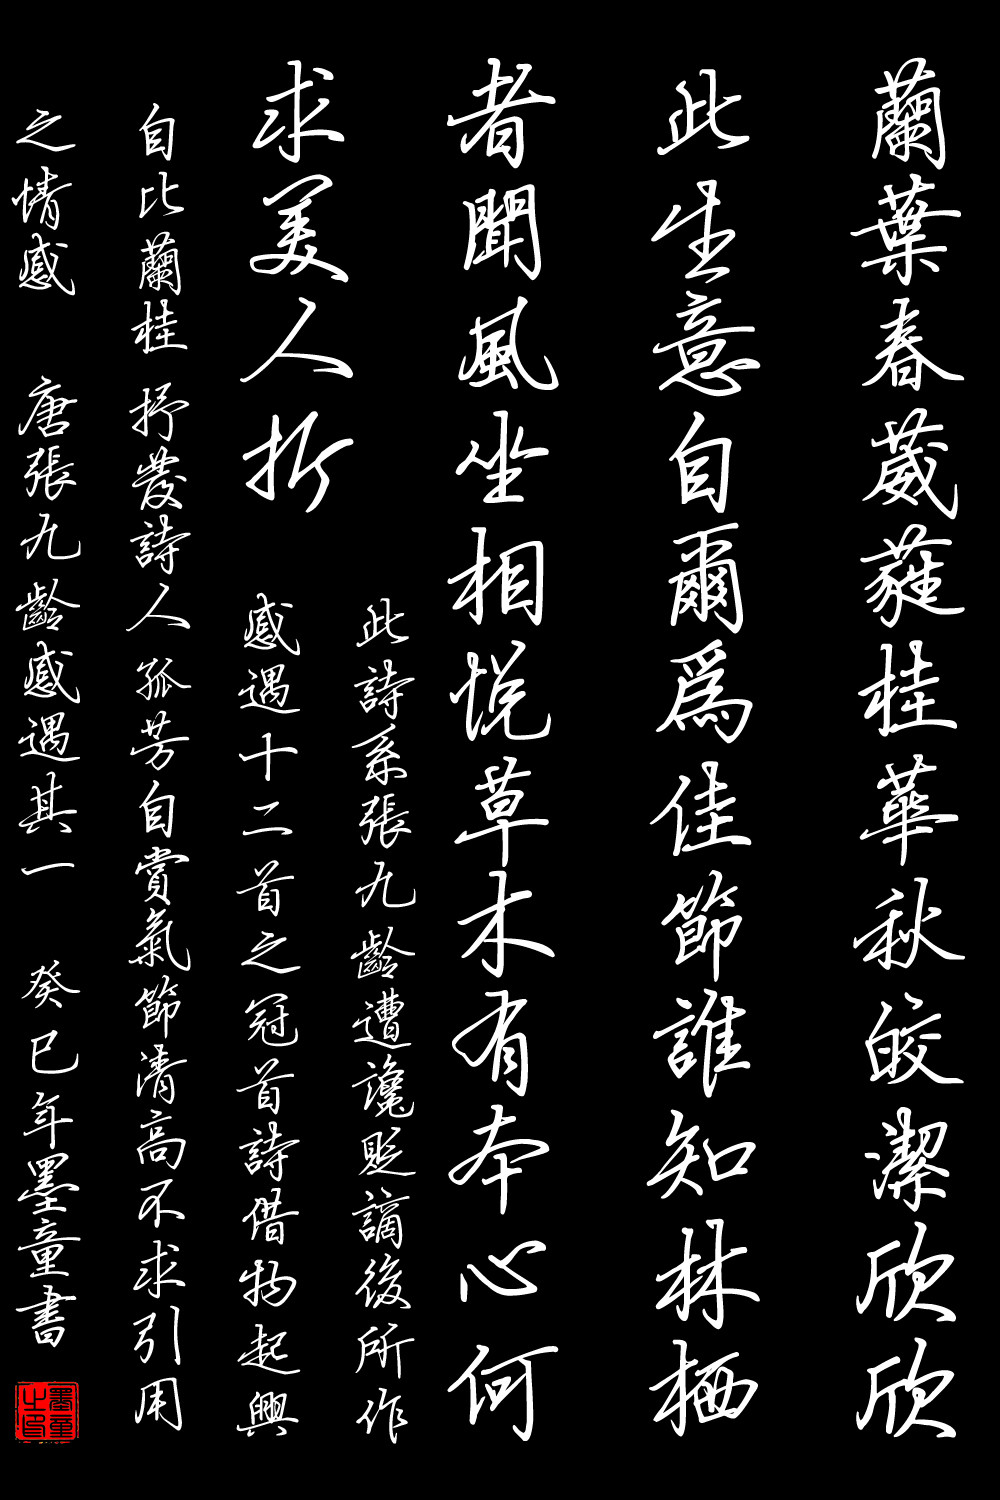 蘭葉春葳蕤桂華秋皎潔欣欣
此生意自爾爲佳節誰知林栖
者聞風坐相悦草木有本心何
求美人折
此詩系張九齡遭讒貶謫後所作
感遇十二首之冠首詩借物起興
自比蘭桂抒發詩人孤芳自賞氣節清高不求引用
之情感 唐張九齡感遇其一 癸巳年墨童書
墨童之印